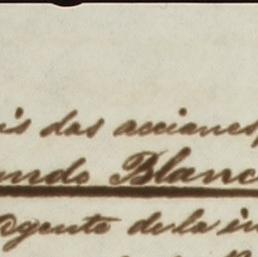 is das acciones,
undo Blanc
Agente de la in